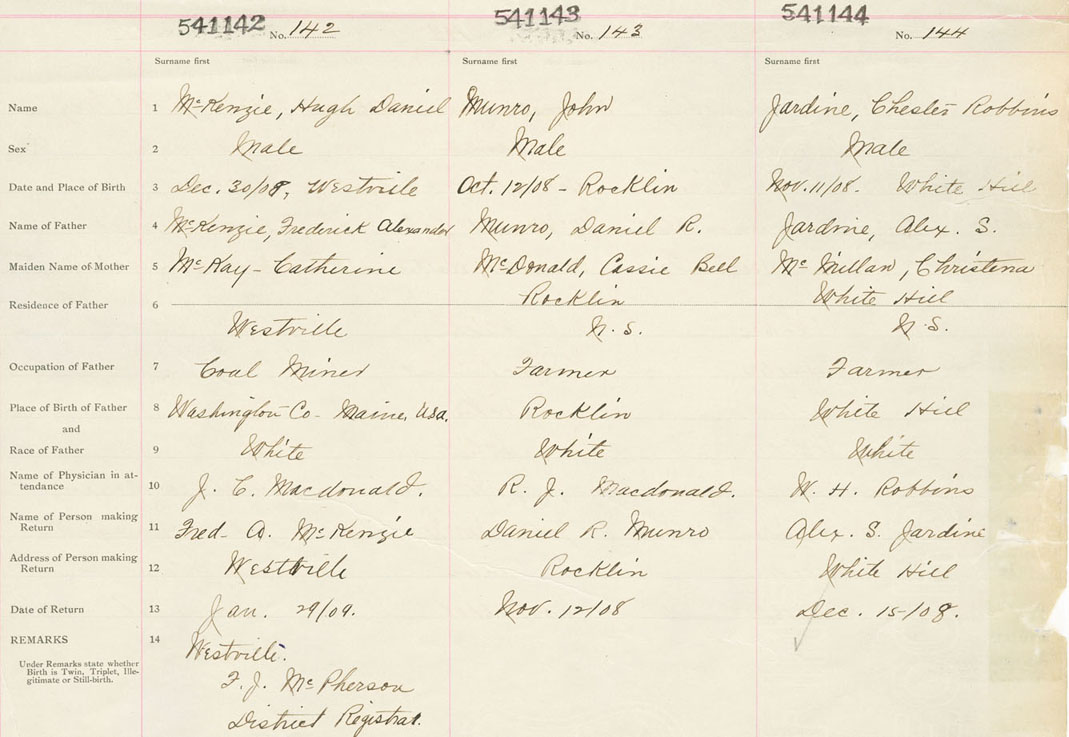 541142 No. 142 541143 No. 143 541144 No. 144
Surname first Surname first Surname first
Name 1 McKenzie, Hugh Daniel Munro, John Jardine, Chester Robbins
Sex 2 Male Male Male
Date and Place of Birth 3 Dec. 30/08, Westville Oct. 12/08 - Rocklin Nov. 11/08. White Hill
Name of Father 4 McKenzie, Frederick Alexander Munro, Daniel R. Jardine, Alex. S.
Maiden Name of Mother 5 McKay - Catherine McDonald, Cassie Bell Mc Millan, Christena
Residence of Father 6 Rocklin White Hill
Westville N.S. N.S.
Occupation of Father 7 Coal Miner Farmer Farmer
Place of Birth of Father 8 Washington Co- Maine, Usa. Rocklin White Hill
and
Race of Father 9 White White White
Name of Physician in at-
tendance 10 J. C. Macdonald. R. J. Macdonald. W. H. Robbins
Name of Person making
Return 11 Fred- A. McKenzie Daniel R. Munro Alex. S. Jardine
Address of Person making
Return 12 Westville Rocklin White Hill
Date of Return 13 Jan. 29/09. Nov. 12/08 Dec. 15/08.
REMARKS 14 Westville.
Under Remarks state whether
Birth is Twin, Triplet, Ille-
gitimate or Still-birth.
F. J. McPherson
District Registrar.